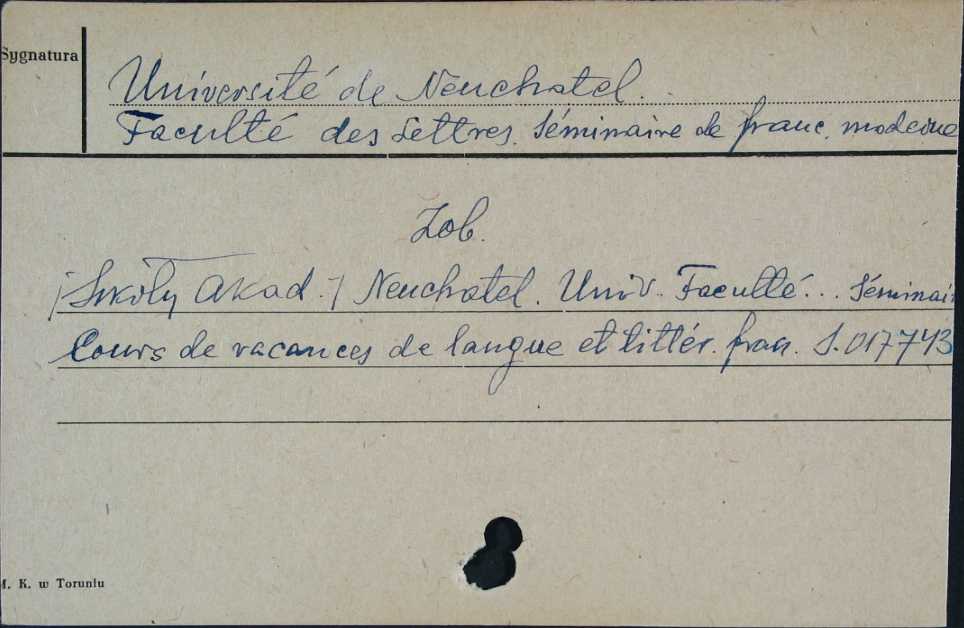 Sygnatura
Université de Neuchatel.
Faculté des Lettres. Séminaire de franç. moderne
Zob.
/Szkoły Akad./ Neuchatel. Univ. Faculté... Séminai
Cours de vacances de langue et littér. franç. S.017743
M. K. w Toruniu